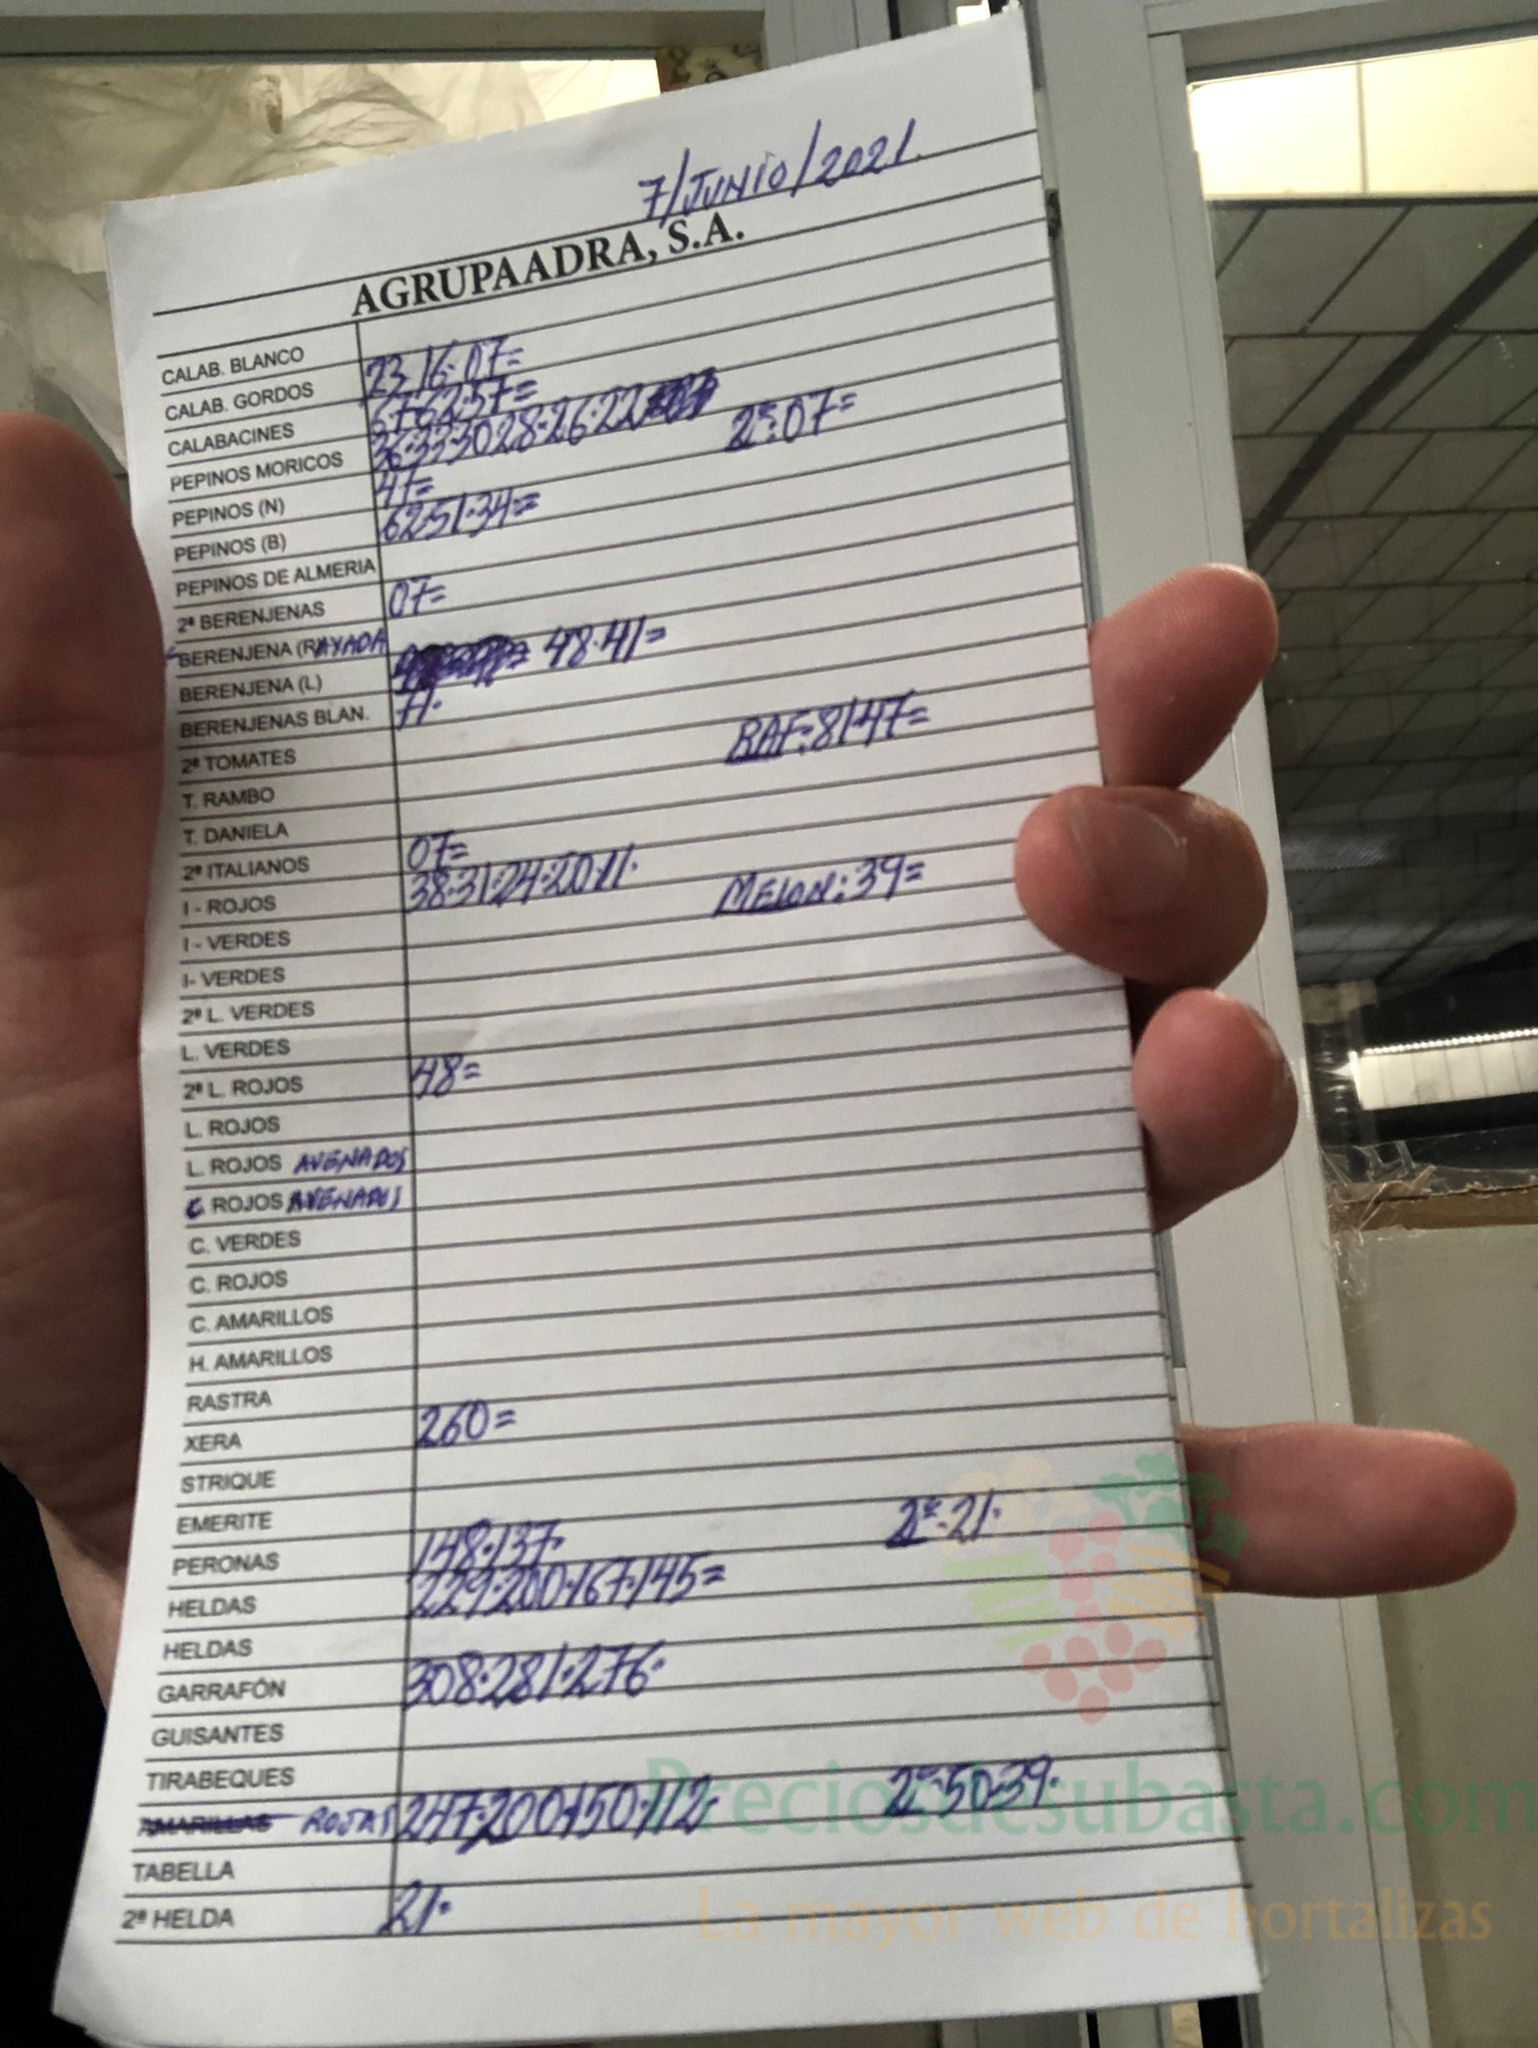 7/JUNIO/2021.
AGRUPAADRA, S.A.
CALAB. BLANCO 23·16·07=
CALAB. GORDOS 67·62·57=
CALABACINES 36·33·30·28·26·22 2ª:07=
PEPINOS MORICOS 41=
PEPINOS (N) 62·51·34=
PEPINOS (B)
PEPINOS DE ALMERIA
2ª BERENJENAS 07=
BERENJENA (RAYADA 48·41=
BERENJENA (L)
BERENJENAS BLAN.
2ª TOMATES RAF:81·47=
T. RAMBO
T. DANIELA
2ª ITALIANOS 07=
I - ROJOS 38·31·24·20·11· MELON:39=
I - VERDES
I- VERDES
2ª L. VERDES
L. VERDES
2ª L. ROJOS 48=
L. ROJOS
L. ROJOS AVENADOS
C ROJOS AVENADOS
C. VERDES
C. ROJOS
C. AMARILLOS
H. AMARILLOS
RASTRA
XERA 260=
STRIQUE
EMERITE
PERONAS 148·137· 2ª·21·
HELDAS 229·200·167·145=
HELDAS
GARRAFÓN 308·281·276·
GUISANTES
TIRABEQUES
AMARILLAS ROJAS 247·200·150·112· 2ª:50·39·
TABELLA
2ª HELDA 21·
Preciosdesubasta.com
La mayor web de hortalizas